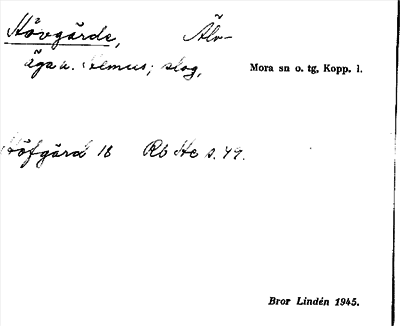 Hövgärde, Älv-
äga u. Selmus; skog, Mora sn o. tg, Kopp. l.
Höfgärd 18 Rb He s. 49.
Bror Lindén 1945.